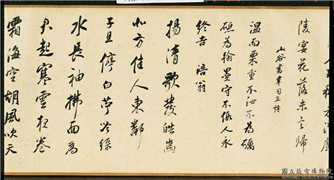 陵宴花落未言歸
溫而栗重不泐不為礪
硯為翰墨守不假人永
終吉 涪翁
揚清歌發皓齒
北方佳人東鄰
子且停白苧吟綠
水長袖拂面為
君起寒雲夜卷
霜海空胡風吹天
國立故宮博物院